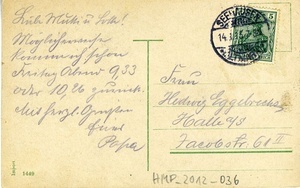 Liebe Mutti u. Lotte!
Möglicherweise
komme ich schon
Freitag Abend 9,33
oder 10,26 zurück.
Mit herzl. Grüßen
Euer
Papa
Frau
Hedwig
Halle a/S
Jacobstr. 61 II
5
1440
HMP_2012_036